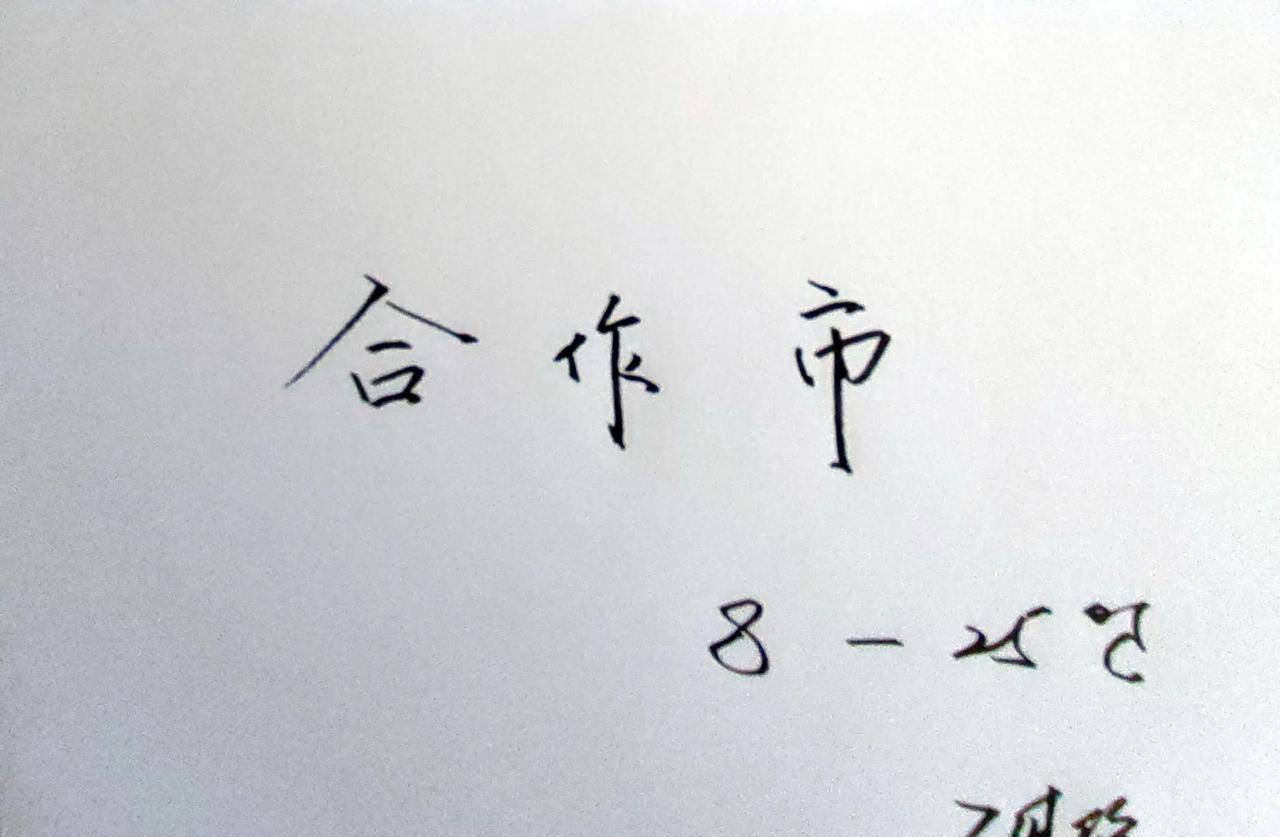 合作市
8-25℃